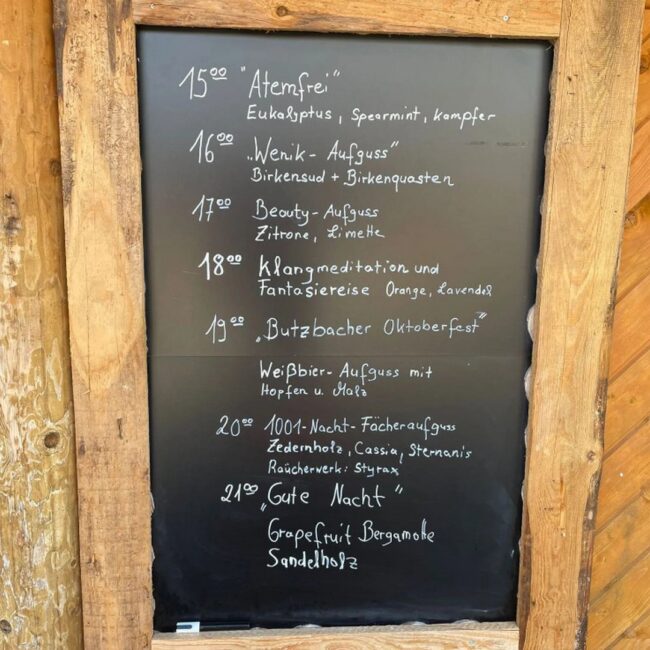 15⁰⁰ "Atemfrei"
Eukalyptus, Spearmint, Kampfer
16⁰⁰ „Wenik-Aufguss"
Birkensud + Birkenquasten
17⁰⁰ Beauty-Aufguss
Zitrone, Limette
18⁰⁰ Klangmeditation und
Fantasiereise Orange, Lavendel
19⁰⁰ „Butzbacher Oktoberfest"
Weißbier-Aufguss mit
Hopfen u. Malz
20⁰⁰ 1001-Nacht-Fächeraufguss
Zedernholz, Cassia, Sternanis
Raücherwerk: Styrax
21⁰⁰ „Gute Nacht"
Grapefruit Bergamotte
Sandelholz